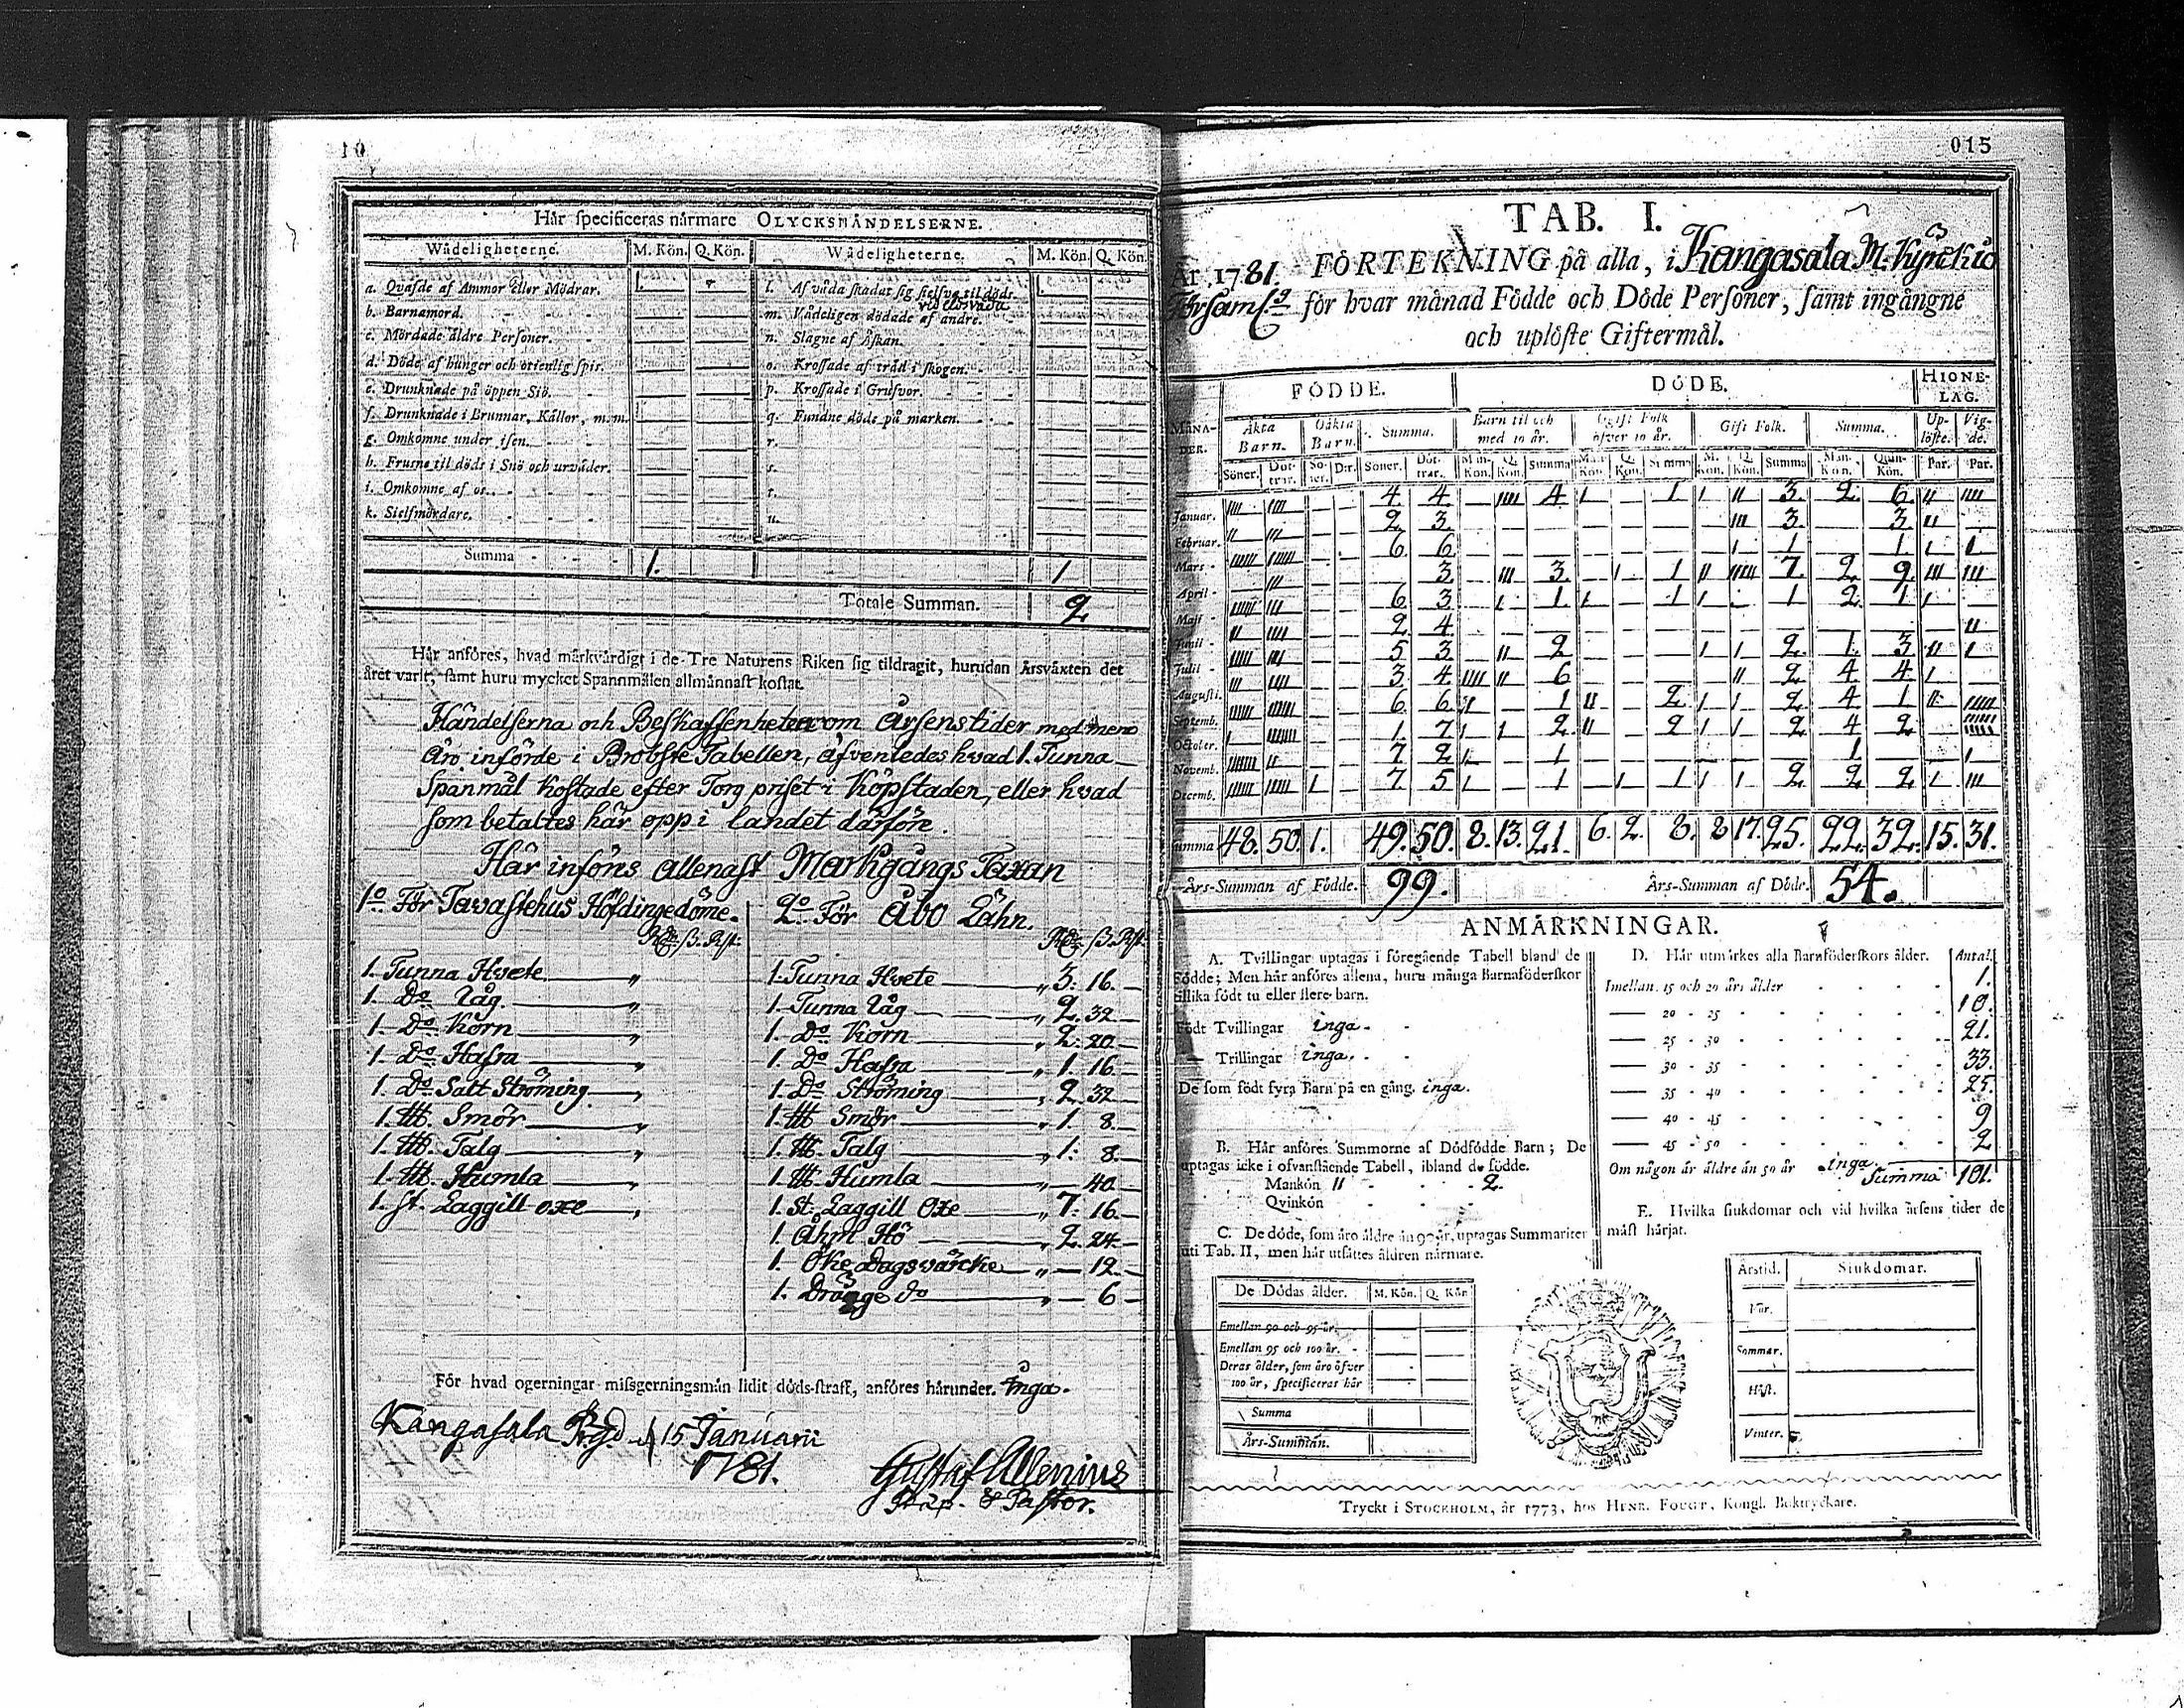 10
Här specificeras närmare OLYCKSHÄNDELSERNE.
Wådeligheterne. M. Kön. Q. Kön. Wådeligheterne. M. Kön. Q. Kön.
a. Qväfde af Ammor eller Mödrar. 1. l. Af våda skadat sig sielfva til döds 1.
b. Barnamord. m. Vådeligen dödade af andre.
c. Mördade äldre Personer. n. Slagne af Åskan.
d. Döde af hunger och otienlig spis. o. Krossade af träd i skogen.
e. Drunknade på öppen Siö. p. Krossade i Grufvor.
f. Drunknade i Brunnar, Källor, m.m. q. Fundne döde på marken.
g. Omkomne under isen. r.
h. Frusne til döds i Snö och urväder. s.
i. Omkomne af os. t.
k. Sielfmördare. u.
Summa 1. 1
Totale Summan. 2
Här anföres, hvad märkvärdigt i de Tre Naturens Riken sig tildragit, hurudan Årsväxten det
året varit, samt huru mycket Spannmålen allmännast kostat.
Händelserna och Beskaffenheten om Årsens tider med mera
äro införde i Probste Tabellen, äfvenledes hvad 1. Tunna
Spanmål kostade efter Torg priset i Köpstaden, eller hvad
som betaltes här opp i landet därföre.
Här införs allenast Markgångs Taxan
1:o För Tavastehus Höfdingedöme. 2:o För Åbo Lähn.
1. Tunna Hvete " 1. Tunna Hvete " 3: 16.
1. D:o Råg. " 1. Tunna Råg " 2. 32
1. D:o Korn " 1. D:o Korn " 2: 20.
1. D:o Hafra " 1. D:o Hafra " 1. 16
1. D:o Salt Strömming " 1. D:o Strömming " 2. 32
1. lb. Smör " 1. lb Smör " 1. 8.
1. lb. Talg " 1. lb. Talg " 1: 8.
1. lb. Humla " 1. lb. Humla " 40
1. St. Laggill oxe " 1. St: Laggill Oxe " 7: 16.
1. Åhm Hö " 2. 24.
1. Öke Dagsvärcke " 12.
1. Dränge d:o " 6
För hvad ogerningar missgerningsmän lidit döds-straff, anföres härunder. Inga.
Kangasala Prgd. d 15 Januarii
1781.
Gustaf Allenius
Præp. & Pastor.
015
TAB. I.
År 1781. FÖRTEKNING på alla, i Kangasala M. Kyrckio
Församl:g för hvar månad Födde och Döde Personer, samt ingångne
och uplöste Giftermål.
FÖDDE. DÖDE. HIONELAG.
MÅNADER. Äkta Barn. Oäkta Barn. Summa. Barn til och med 10 år. Ogift Folk öfver 10 år. Gift Folk. Summa. Uplöste. Vigde.
Söner. Döttrar. Söner. Dr. Söner. Döttrar. M. Kön. Q. Kön. Summa M. Kön. Q. Kön. Summa M. Kön. Q. Kön. Summa Man. Kön. Quin-Kön. Par. Par.
Januar. //// //// 4. 4. — //// 4 / — 1 / // 3. 2. 6. // ////
Februar. // /// 2. 3. /// 3. 3 //
Mars ////// ////// 6 6 / 1 1. / /
April /// 3. /// 3. / 1 // ///// 7. 2. 9. /// ///
Maji ////// /// 6. 3 / 1. / 1 / 1 2. 1. /
Junii // //// 2. 4. //
Julii ///// /// 5 3 // 2 / / 2. 1. 3 // /
Augusti. /// //// 3. 4 //// // 6 // 2 4 4 /
Septemb. ////// ////// 6 6 / 1 // 2 / / 2. 4 1 // /////
October. / /////// 1. 7 / / 2. // 2 / / 2 4 2.
Novemb. /////// // 7 2 / 1 1 /
Decemb. ////// ///// / 7. 5 / 1 / 1 / / 2 2. 2. / ///
Summa 48. 50. 1. 49. 50. 8. 13. 21. 6. 2. 8. 8 17. 25. 22. 32. 15. 31.
Års-Summan af Födde. 99. Års-Summan af Döde. 54.
ANMÄRKNINGAR.
A. Tvillingar uptagas i föregående Tabell bland de
födde; Men här anföres allena, huru många Barnaföderskor
tillika födt tu eller flere barn.
Födt Tvillingar inga.
— Trillingar inga.
De som födt fyra Barn på en gång. inga.
B. Här anföres Summorne af Dödfödde Barn; De
uptagas icke i ofvanstående Tabell, ibland de födde.
Mankön // 2.
Qvinkön
C. De döde, som äro äldre än 90 år, uptagas Summariter
uti Tab. II, men här utsättes åldren närmare.
De Dödas ålder. M. Kön. Q. Kön
Emellan 90 och 95 år.
Emellan 95 och 100 år.
Deras ålder, som äro öfver
100 år, specificeras här
Summa
Års-Summan.
D. Här utmärkes alla Barnföderskors ålder. Antal.
Imellan 15 och 20 års ålder 1.
— 20 - 25 10.
— 25 - 30 21.
— 30 - 35 33.
— 35 - 40 25.
— 40 - 45 9
— 45 - 50 2
Om någon är äldre än 50 år inga. Summa 101.
E. Hvilka siukdomar och vid hvilka årsens tider de
mäst härjat.
Årstid. Siukdomar.
Vår.
Sommar.
Höst.
Vinter.
Tryckt i STOCKHOLM, år 1773, hos HENR. FOUGT, Kongl. Boktryckare.